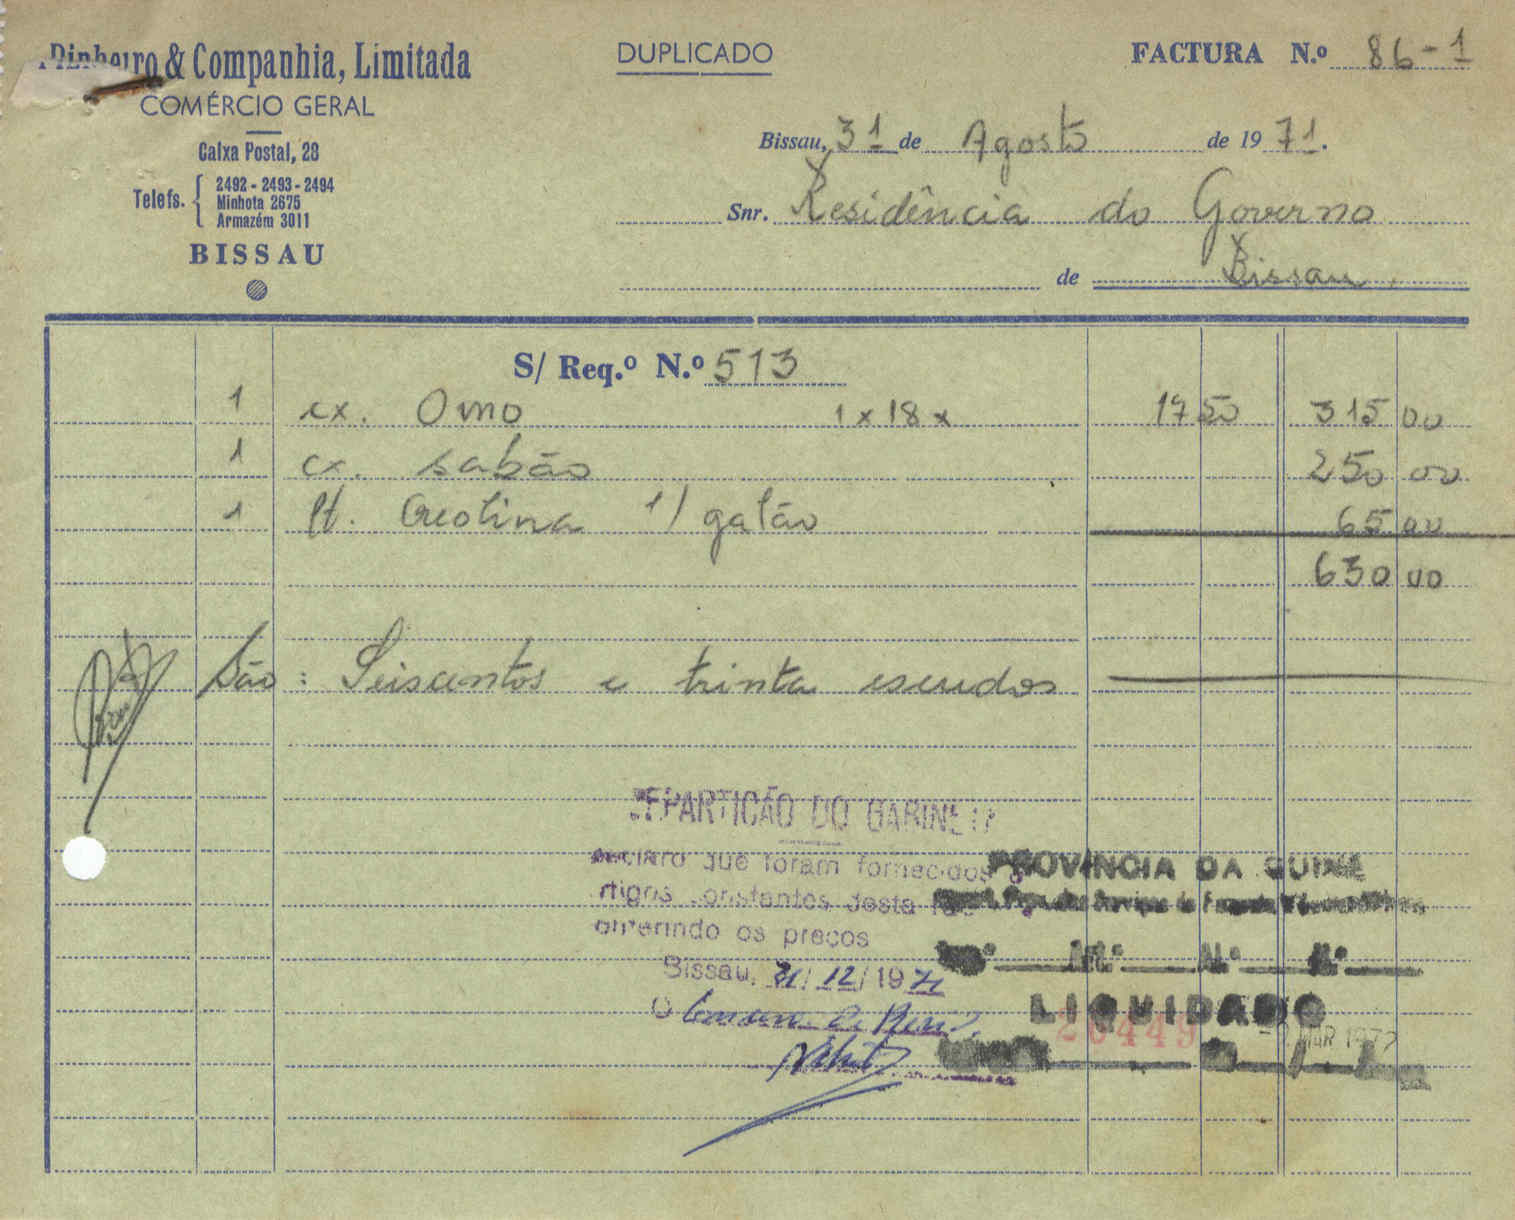 Pinheiro & Companhia, Limitada
COMÉRCIO GERAL
Caixa Postal, 28
Telefs. 2492 - 2493 - 2494
Minhota 2675
Armazém 3011
BISSAU
DUPLICADO
FACTURA N.º 86-1
Bissau, 31 de Agosto de 1971.
Snr. Residência do Governo
de Bissau.
S/ Req.º N.º 513
1 cx. Omo 1 x 18 x 17 50 315 00
1 cx. sabão 250 00
1 lt. Creolina 1/ galão 65 00
630 00
São: Seiscentos e trinta escudos
REPARTIÇÃO DO GABINETE
Declaro que foram fornecidos
artigos constantes desta
conferindo os preços
Bissau, 31/12/1971
O
PROVÍNCIA DA GUINÉ
LIQUIDADO
20449
MAR 1972